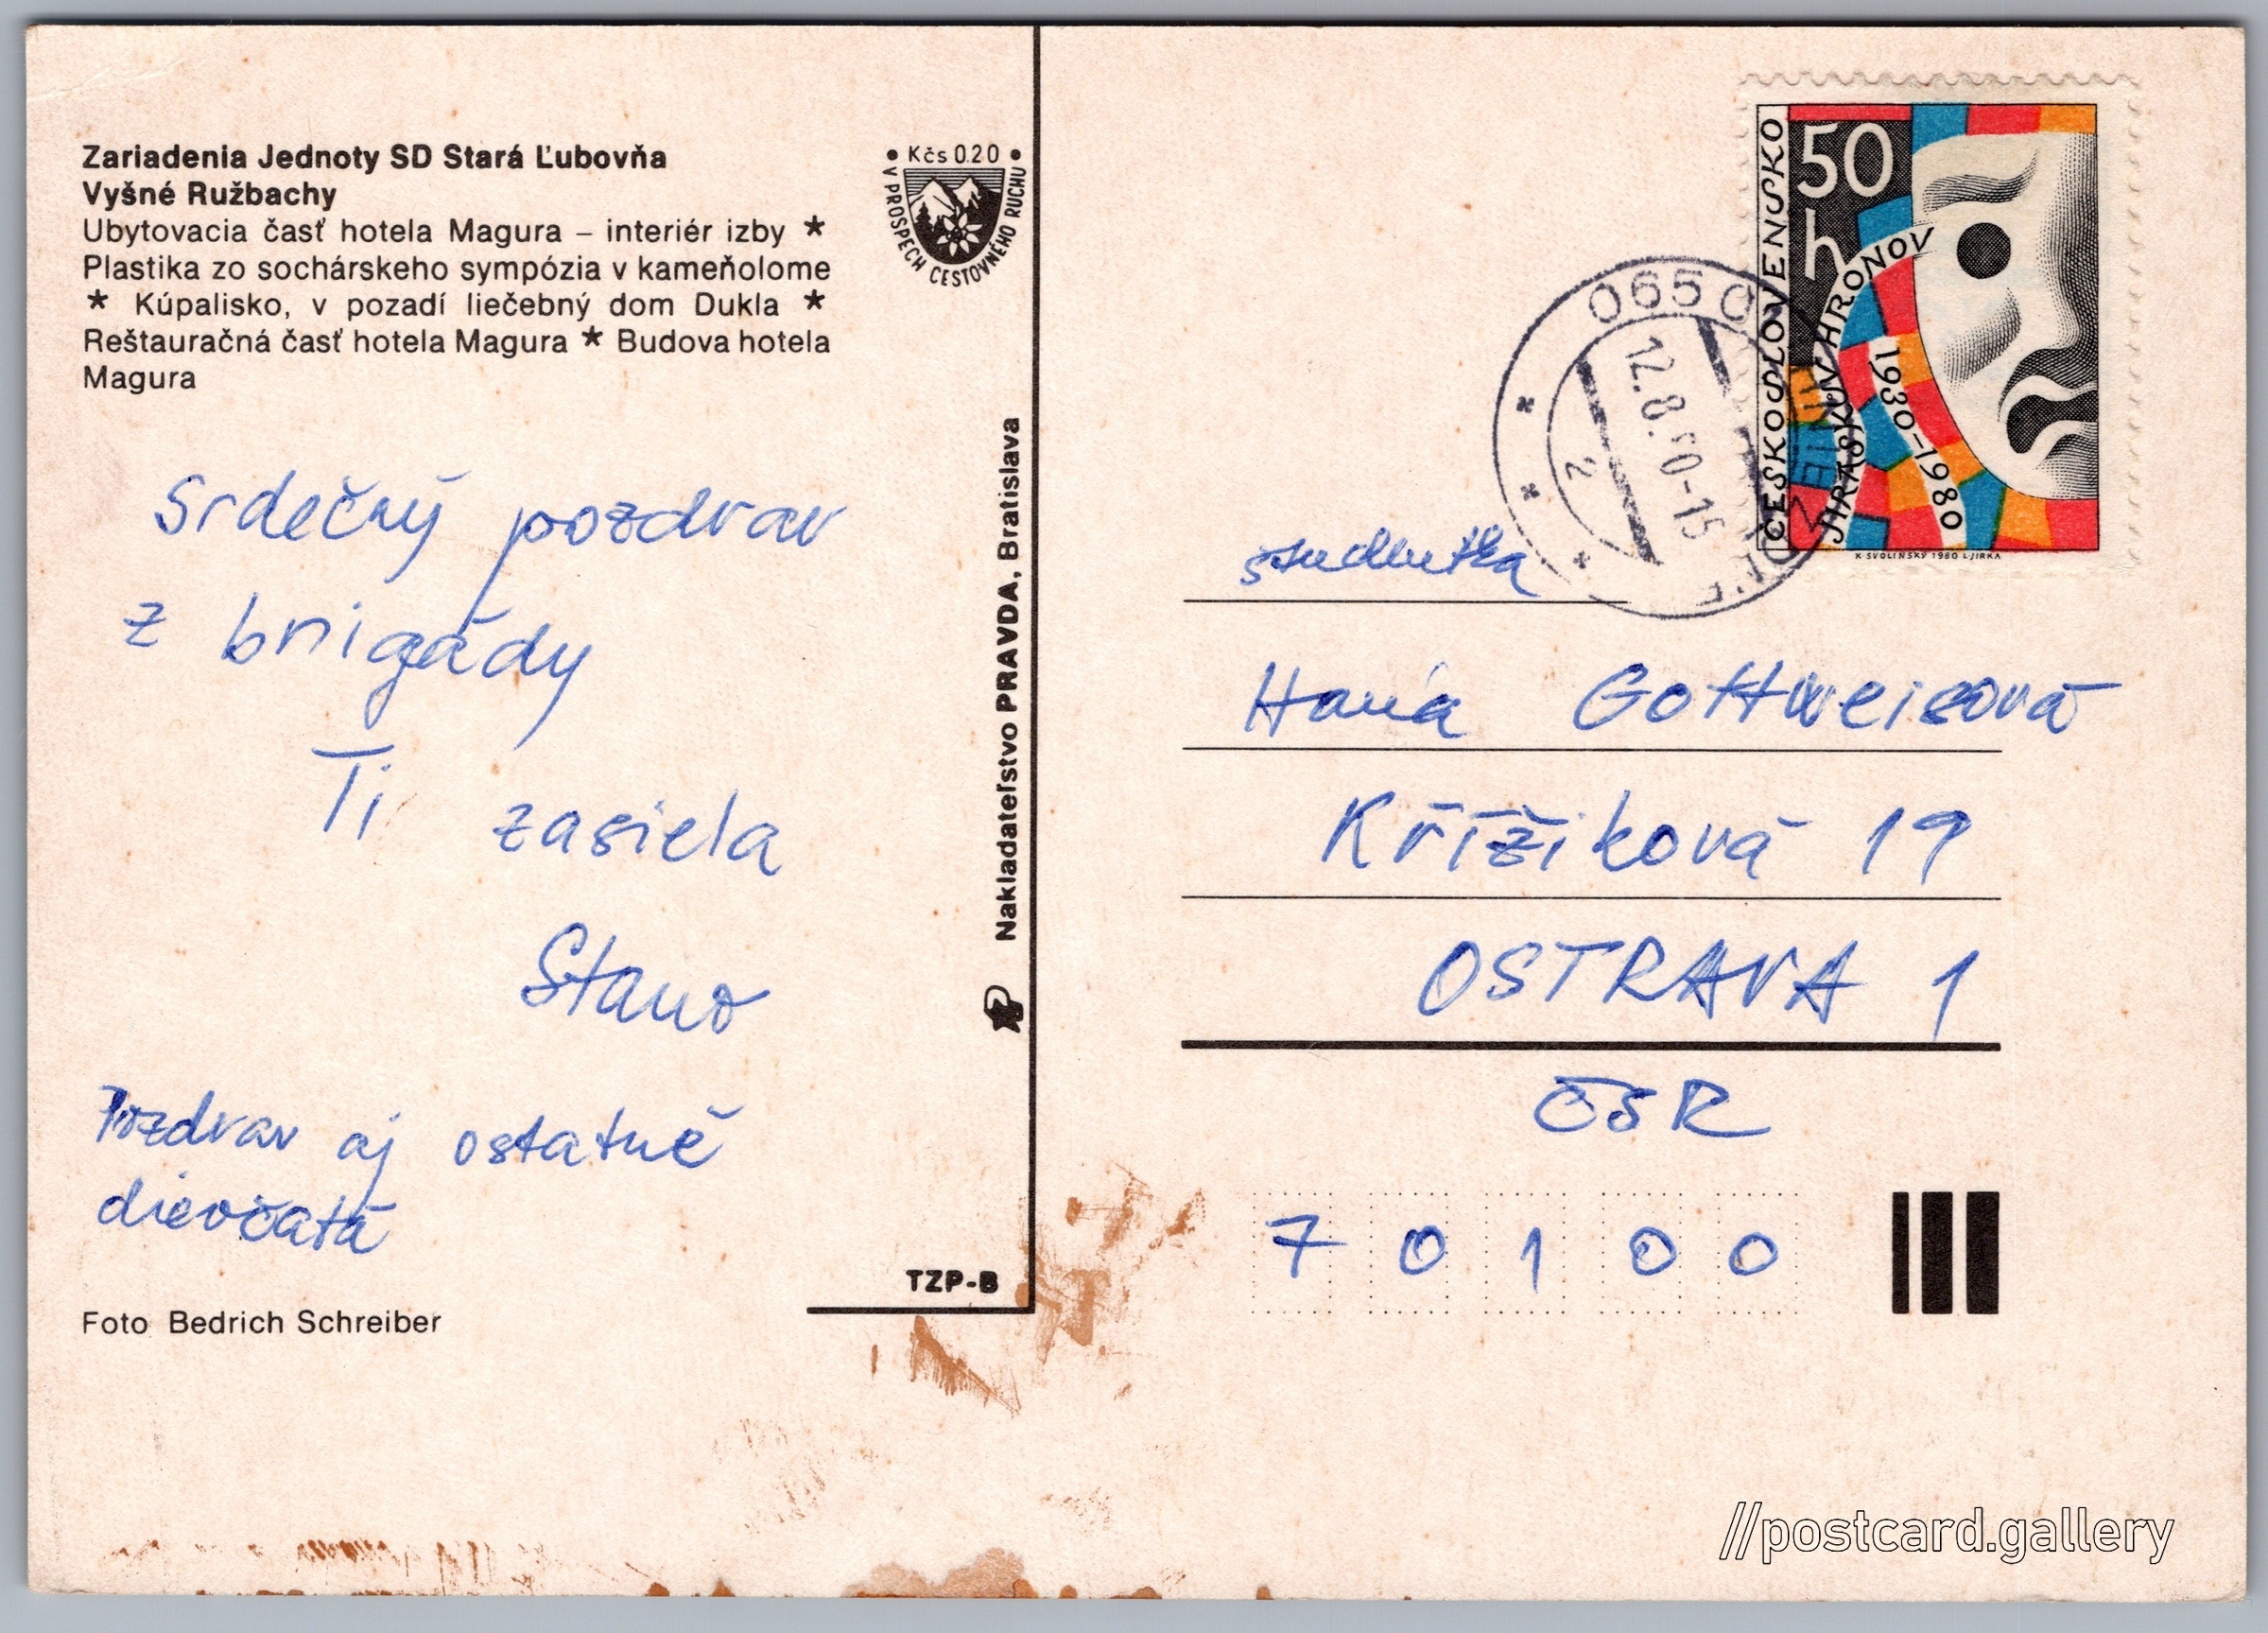 Zariadenia Jednoty SD Stará Ľubovňa
Vyšné Ružbachy
Ubytovacia časť hotela Magura – interiér izby *
Plastika zo sochárskeho sympózia v kameňolome
* Kúpalisko, v pozadí liečebný dom Dukla *
Reštauračná časť hotela Magura * Budova hotela
Magura
• Kčs 0.20 •
V PROSPECH CESTOVNÉHO RUCHU
Srdečný pozdrav
z brigády
Ti zasiela
Stano
Pozdrav aj ostatné
dievčatá
Foto Bedrich Schreiber
TZP-B
Nakladateľstvo PRAVDA, Bratislava
ČESKOSLOVENSKO
50
h
JIRÁSKŮV HRONOV
1930–1980
K. SVOLINSKÝ 1980 L. JIRKA
0650
12.8.80-15
2
študentka
Hana Gottweisová
Křížiková 19
OSTRAVA 1
ČSR
70100
//postcard.gallery